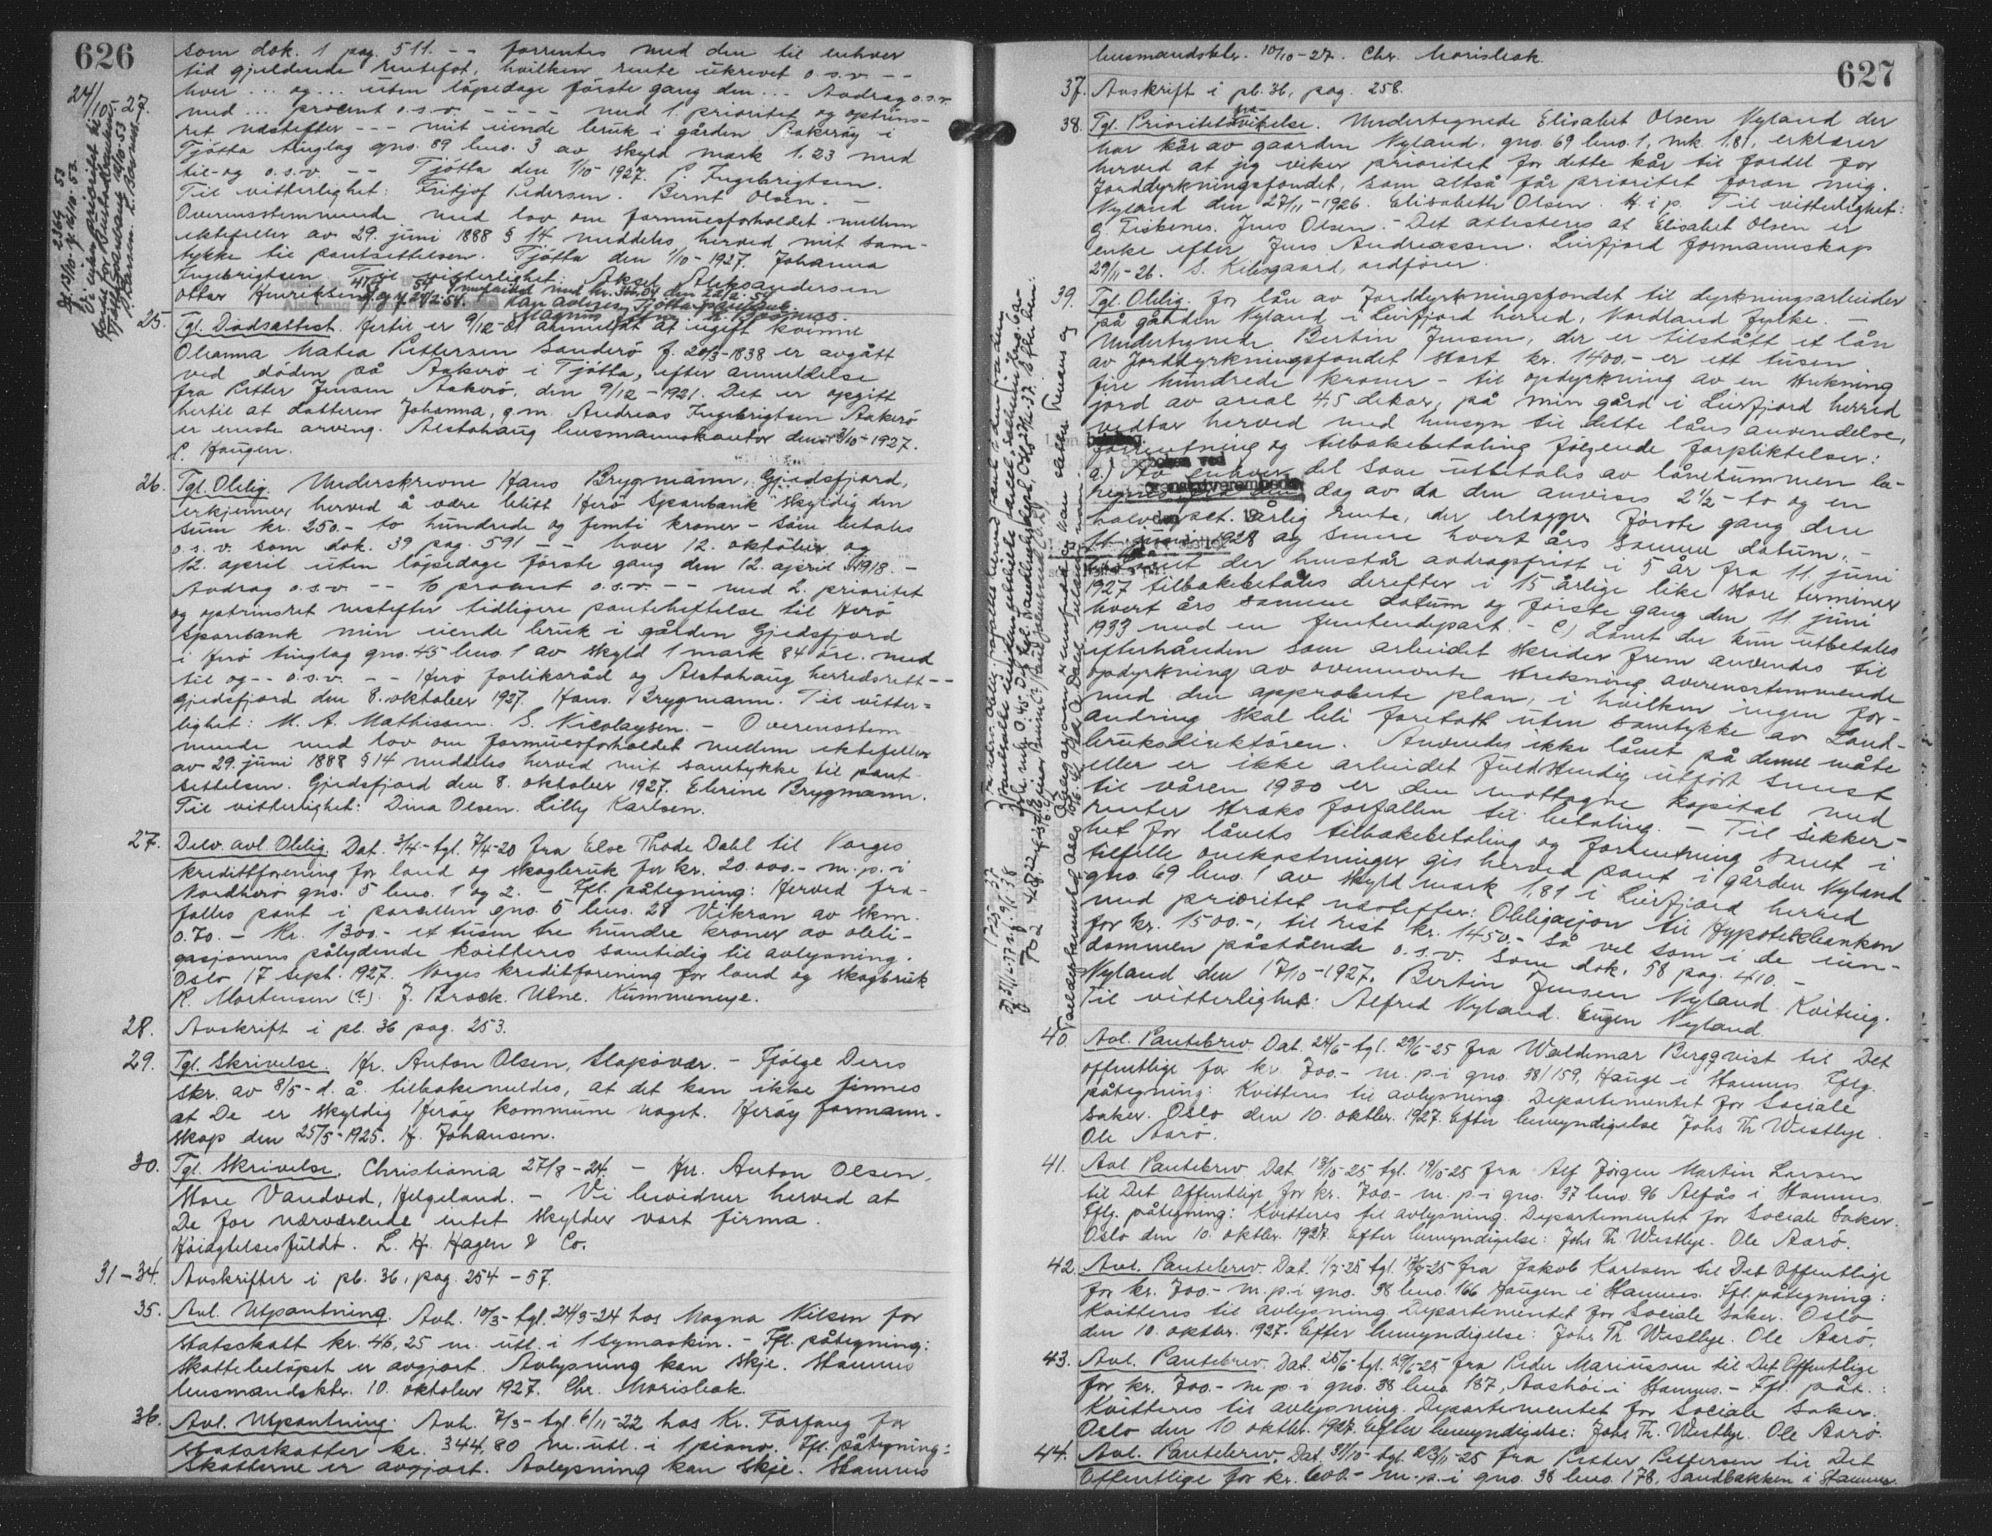 626
som dok. 1 pag. 511. -- forrentes med den til enhver
tid gjeldende rentefot, hvilken rente ukrevet o.s.v. --
hver ... og ... uten löpedage förste gang den ... Avdrag o.s.v.
med ... procent o.s.v. ---- med 1. prioritet og optrins-
ret næstefter --- mit eiende bruk i gården Aakeröy i
Tjötta tinglag gno. 89 bno. 3 av skyld mark 1.23 med
til- og o.s.v. -- Tjötta den 1/10-1927. P. Ingebrigtsen.
Til vitterlighet: Fritjof Pedersen. Bernt Olsen. -
Overensstemmende med lov om formuesforholdet mellem
ektefeller av 29. juni 1888 § 14 meddeles herved mit sam-
tykke til pantsettelsen. Tjötta den 1/10-1927. Johanna
Ingebrigtsen. Til vitterlighet: Aksel Aleksandersen
Ottar Henriksen.
25. Tgl. Dödsattest. Hertil er 9/12-21 anmeldt at ugift kvinne
Oleanna Matea Pettersen Sanderö f. 20/3-1838 er avgått
ved döden på Aakerö i Tjötta, efter anmeldelse
fra Petter Jensen Aakerö, den 9/12-1921. Det er opgitt
hertil at datteren Johanna, g.m. Andreas Ingebrigtsen Aakerö
er eneste arving. Alstahaug lensmannskontor den 3/10-1927.
P. Haugen.
26. Tgl. Oblig. Underskrevne Hans Brygmann, Gjedsfjord,
erkjenner herved å være blitt Herö Sparebank skyldig den
sum kr. 250.- to hundrede og femti kroner - som betales
o.s.v. som dok. 39 pag. 591 -- hver 12. oktober og
12. april uten löpedage förste gang den 12. april 1918. -
Avdrag o.s.v. 6 procent o.s.v. -- med 2. prioritet
og optrinsret nestefter tidligere pantheftelse til Herö
Sparebank min eiende bruk i gården Gjedsfjord
i Herö tinglag gno. 45 bno. 1 av skyld 1 mark 84 öre. med
til og -- o.s.v. -- Herö forliksråd og Alstahaug herredsrett --
Gjedsfjord den 8. oktober 1927. Hans Brygmann. Til vitter-
lighet: M. A. Mathissen. S. Nicolaysen. - Overensstem
mende med lov om formuesforholdet mellem ektefeller
av 29. juni 1888 § 14 meddeles herved mit samtykke til pant-
settelsen. Gjedsfjord den 8. oktober 1927. Elerine Brygmann.
Til vitterlighet: Dina Olsen. Lilly Karlsen.
27. Delv. avl. Oblig. Dat. 3/4- tgl. 7/4-20 fra Elve Thode Dahl til Norges
kreditforening for land og skogbruk for kr. 20.000.- m.p. i
Nordherö gno. 5 bno. 1 og 2. - Tfl. påtegning: Herved fra-
falles pant i parsellen gno. 5 bno. 28 Vikran av skm.
0.70. - Kr. 1300.- et tusen tre hundre kroner av obli-
gasjonens pålydende kvitteres samtidig til avlysning.
Oslo 17 sept. 1927. Norges kreditforening for land og skogbruk
R. Mortensen (?). J. Brock. Ulne. Kummeneje.
28. Avskrift i pb. 36 pag. 253.
29. Tgl. Skrivelse. Hr. Anton Olsen, Slapövær. - Ifölge Deres
skr. av 8/5- d. å. tilbakemeldes, at det kan ikke finnes
at De er skyldig Heröy kommune noget. Heröy formann-
skap den 25/5-1925. H. Johansen.
30. Tgl. Skrivelse. Christiania 27/8-24. - Hr. Anton Olsen,
Store Vandved, Helgeland. - Vi bevidner herved at
De for nærværende intet skylder vort firma.
Höiagtelsesfuldt. L. H. Hagen & Co.
31-34. Avskrifter i pb. 36, pag. 254-57.
35. Avl. Utpantning. Avh. 10/3- tgl. 24/3-24 hos Magna Nilsen for
statsskatt kr. 46,25 m. utl. i 1 symaskin. - Tfl. påtegning:
Skattebelöpet er avgjort. Avlysning kan skje. Stamnes
lensmandsktr. 10. oktober 1927. Chr. Morisbak.
36. Avl. Utpantning. Avh. 7/3- tgl. 6/11-22 hos Kr. Forfang for
statsskatter kr. 344,80 m. utl. i 1 piano. Tfl. påtegning:
Skatterne er avgjort. Avlysning kan skje. Stamnes
627
lensmandsktr. 10/10-27. Chr. Morisbak.
37. Avskrift i pb. 36, pag. 258.
38. Tgl. Prioritetsfravikelse. Undertegnede Elisabet Olsen Nyland der
har kår av gaarden Nyland, gno. 69 bno. 1, mk. 1.81, erklærer
herved at jeg viker prioritet for dette kår til fordel for
Jorddyrkningsfondet, som altså får prioritet foran mig.
Nyland den 27/11-1926. Elisabeth Olsen. H. i p. Til vitterlighet:
G. Fiskenes. Jens Olsen. - Det attesteres at Elisabet Olsen er
enke efter Jens Andreassen. Leirfjord formannskap
29/11-26. S. Kibsgaard, ordförer.
39. Tgl. Oblig. for lån av Jorddyrkningsfondet til dyrkningsarbeider
på gården Nyland i Leirfjord herred, Nordland fylke. -
Undertegnede Bertin Jensen, der er tilstått et lån
av Jorddyrkningsfondet stort kr. 1400.- er ett tusen
fire hundrede kroner - til opdyrkning av en strekning
jord av areal 4,5 dekar, på min gård i Leirfjord herred
vedtar herved med hensyn til dette låns anvendelse,
forrentning og tilbakebetaling følgende forpliktelser:
a.) Av enhver del som utbetales av lånesummen be-
regnes fra den dag av da den anvises 2½ - to og en
halv pct. årlig rente, der erlægges förste gang den
11. juni 1928 og senere hvert års samme datum. -
der henstår avdragsfritt i 5 år fra 11. juni
1927 tilbakebetales derefter i 15 årlige like store terminer
hvert års samme datum og förste gang den 11 juni
1933 med en femtendepart. - c) Lånet der kun utbetales
efterhånden som arbeidet skrider frem anvendes til
opdyrkning av ovennevnte strekning overensstemmende
med den approberte plan, i hvilken ingen for-
andring skal bli foretatt uten samtykke av Land-
bruksdirektören. Anvendes ikke lånet på denne måte
eller er ikke arbeidet fuldstendig utfört senest
til våren 1930 er den mottagne kapital med
renter straks forfallen til betaling. - Til sikker-
het for lånets tilbakebetaling og forrentning samt i
tilfelle omkostninger gis herved pant i gården Nyland
gno. 69 bno. 1 av skyld mark 1,81 i Leirfjord herred
med prioritet næstefter: Obligasjon til Hypotekbanken
for kr. 1500.-, til rest kr. 1450.- Så vel som i de eien-
dommen påstående o.s.v. som dok. 58 pag. 410. -
Nyland den 17/10-1927. Bertin Jensen Nyland. Kvitteg.
Til vitterlighet: Alfred Nyland. Eugen Nyland
40. Avl. Pantebrev. Dat. 24/6- tgl. 29/6-25 fra Waldemar Bergqvist til Det
offentlige for kr. 700.- m.p. i gno. 38/159, Hauge i Stamnes. Tflg.
påtegning: Kvitteres til avlysning. Departementet for Sociale
Saker. Oslo den 10. oktbr. 1927. Efter bemyndigelse Johs Th Westbye.
Ole Aarö.
41. Avl. Pantebrev. Dat. 18/5-25 tgl. 19/5-25 fra Alf Jörgen Martin Larsen
til Det Offentlige for kr. 700.- m.p. i gno. 37 bno. 96 Alfås i Stamnes.
Tflg. påtegning: Kvitteres til avlysning. Departementet for Sociale Saker.
Oslo den 10. oktbr. 1927. Efter bemyndigelse: Johs Th. Westbye. Ole Aarö.
42. Avl. Pantebrev. Dat. 1/7-25 tgl. 13/7-25 fra Jakob Karlsen til Det Offentlige
for kr. 700.- m.p. i gno. 38 bno. 166 Haugen i Stamnes. Tfl. påtegning:
Kvitteres til avlysning. Departementet for Sociale Saker. Oslo
den 10. oktbr. 1927. Efter bemyndigelse: Johs Th. Westbye. Ole Aarö.
43. Avl. Pantebrev. Dat. 25/6- tgl. 29/6-25 fra Peder Mariussen til Det Offentlige
for kr. 700.- m.p. i gno. 38 bno. 187, Aashöi i Stamnes. - Tfl. påt.:
Kvitteres til avlysning. Departementet for Sociale Saker.
Oslo den 10 oktbr. 1927. Efter bemyndigelse: Johs Th. Westbye. Ole Aarö.
44. Avl. Pantebrev. Dat. 31/10- tgl. 23/11-25 fra Petter Pettersen til Det
Offentlige for kr. 600.- m.p. i gno. 38 bno. 178, Sandbakken i Stamnes.